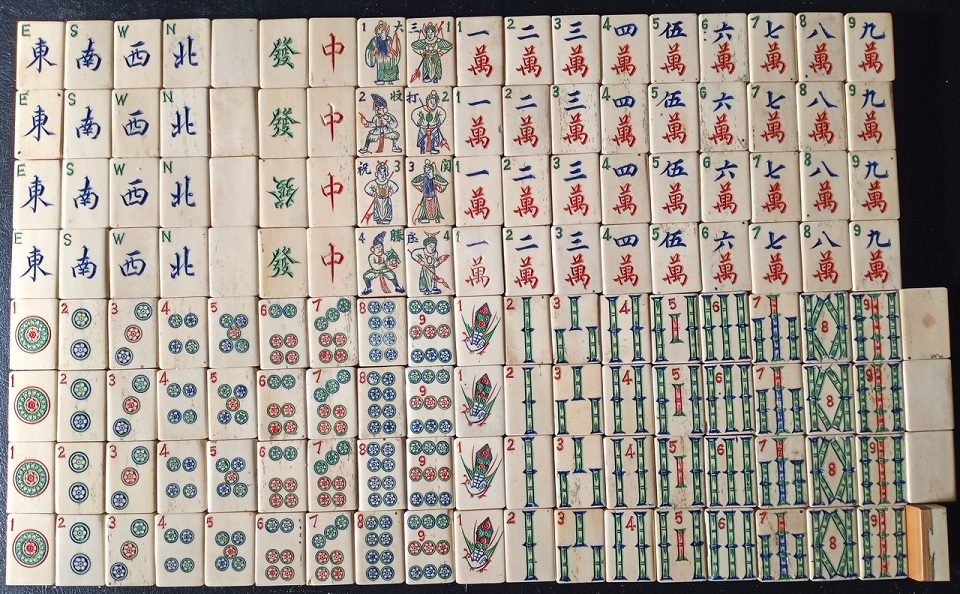 E S W N 1 大 三 1 1 2 3 4 5 6 7 8 9
東 南 西 北 發 中 一 二 三 四 伍 六 七 八 九
萬 萬 萬 萬 萬 萬 萬 萬 萬
E S W N 2 打 2 1 2 3 4 5 6 7 8 9
東 南 西 北 發 中 一 二 三 四 伍 六 七 八 九
萬 萬 萬 萬 萬 萬 萬 萬 萬
E S W N 祝 3 3 関 1 2 3 4 5 6 7 8 9
東 南 西 北 發 中 一 二 三 四 伍 六 七 八 九
萬 萬 萬 萬 萬 萬 萬 萬 萬
E S W N 4 勝 庄 4 1 2 3 4 5 6 7 8 9
東 南 西 北 發 中 一 二 三 四 伍 六 七 八 九
萬 萬 萬 萬 萬 萬 萬 萬 萬
1 2 3 4 5 6 7 8 9 1 2 3 4 5 6 7 8 9
1 2 3 4 5 6 7 8 9 1 2 3 4 5 6 7 8 9
1 2 3 4 5 6 7 8 9 1 2 3 4 5 6 7 8 9
1 2 3 4 5 6 7 8 9 1 2 3 4 5 6 7 8 9